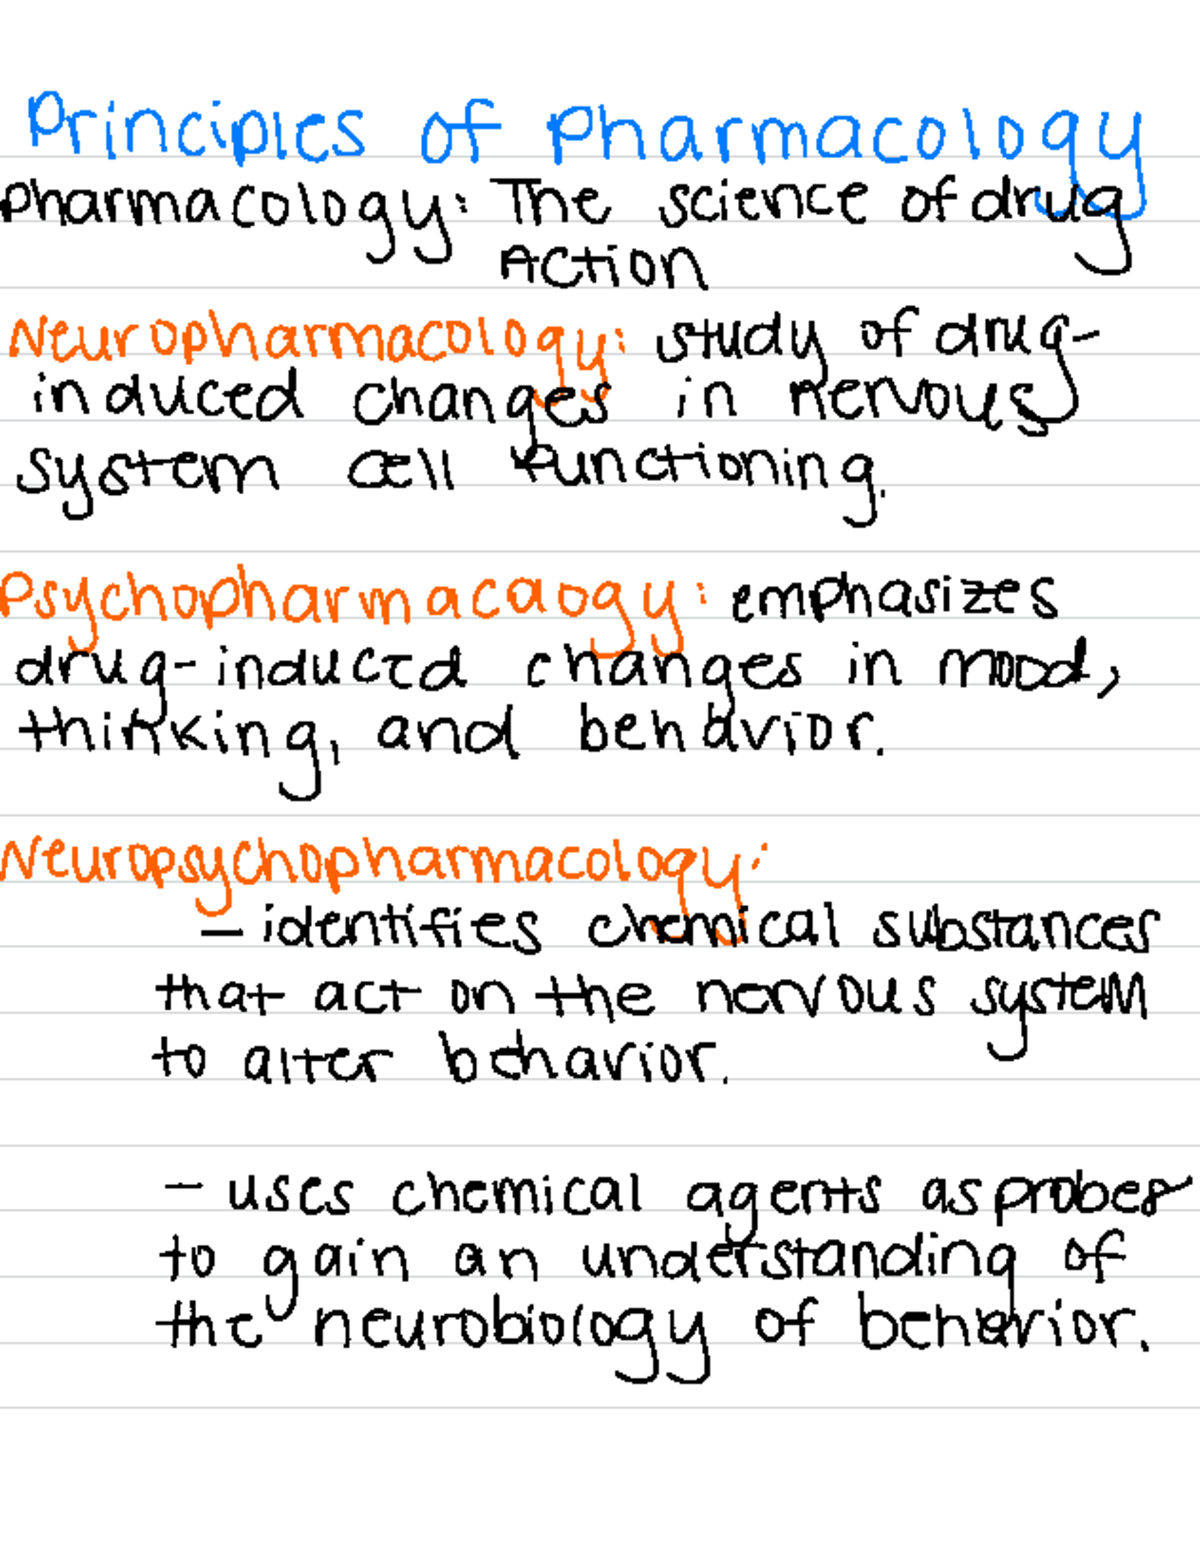 Principles of Pharmacology
Pharmacology: The science of drug
Action
Neuropharmacology: study of drug-
induced changes in nervous
system cell functioning.
Psychopharmacaogy: emphasizes
drug-induced changes in mood,
thinking, and behavior.
Neuropsychopharmacology:
- identifies chemical substances
that act on the nervous system
to alter behavior.
- uses chemical agents as probes
to gain an understanding of
the neurobiology of behavior.